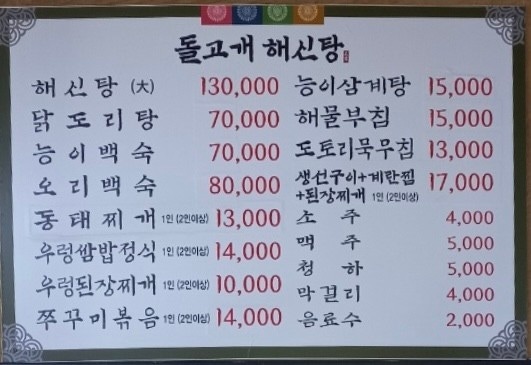 돌고개 해신탕
해신탕 (大) 130,000
닭도리탕 70,000
능이백숙 70,000
오리백숙 80,000
동태찌개 1인 (2인이상) 13,000
우렁쌈밥정식 1인 (2인이상) 14,000
우렁된장찌개 1인 (2인이상) 10,000
쭈꾸미볶음 1인 (2인이상) 14,000
능이삼계탕 15,000
해물부침 15,000
도토리묵무침 13,000
생선구이+계란찜
+된장찌개 1인 (2인이상) 17,000
소주 4,000
맥주 5,000
청하 5,000
막걸리 4,000
음료수 2,000